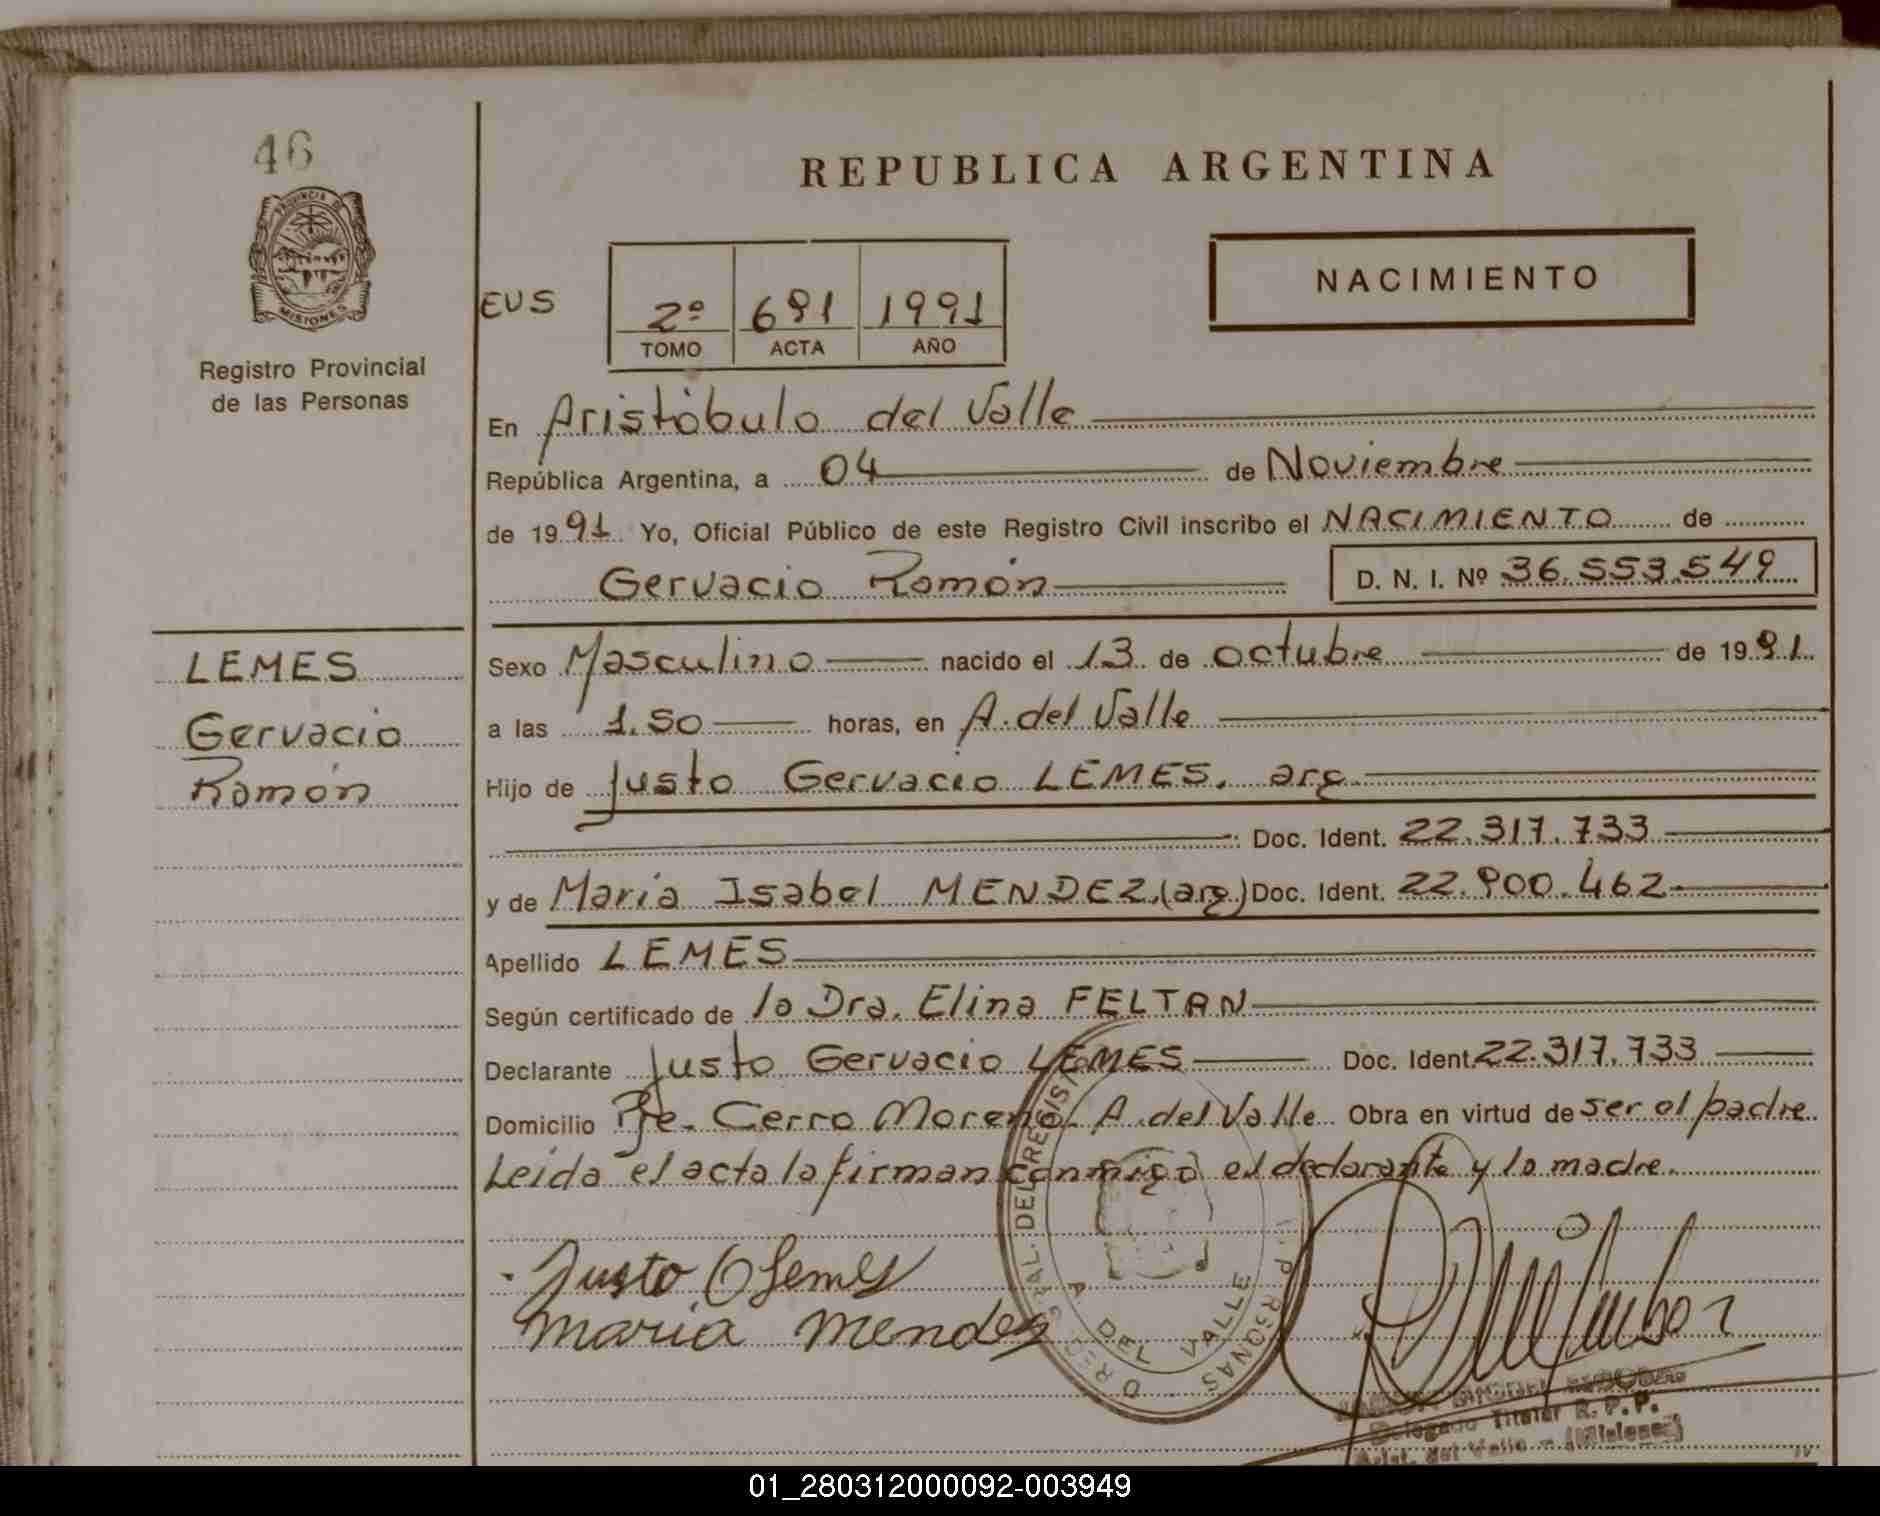 46
PROVINCIA DE
MISIONES
Registro Provincial
de las Personas
REPUBLICA ARGENTINA
NACIMIENTO
EUS
2º 691 1991
TOMO ACTA AÑO
En Aristóbulo del Valle
República Argentina, a 04 de Noviembre
de 1991 Yo, Oficial Público de este Registro Civil inscribo el NACIMIENTO de
Gervacio Ramón D. N. I. Nº 36.553.549
LEMES
Gervacio
Ramón
Sexo Masculino nacido el 13 de octubre de 1991
a las 1.50 horas, en A. del Valle
Hijo de Justo Gervacio LEMES. arg
Doc. Ident. 22.317.733
y de Maria Isabel MENDEZ.(arg) Doc. Ident. 22.900.462
Apellido LEMES
Según certificado de la Dra. Elina FELTAN
Declarante Justo Gervacio LEMES Doc. Ident. 22.317.733
Domicilio Pje. Cerro Moreno. A. del Valle Obra en virtud de ser el padre
Leida el acta la firman conmigo el declarante y la madre.
Justo G Lemes
maria mendez
DEL VALLE
Delegado Titular R. P. P.
Arist. del Valle - (Misiones)
01_280312000092-003949